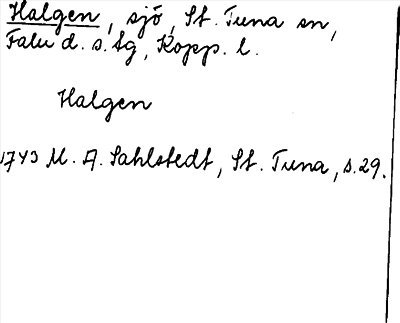 Halgen, sjö, St. Tuna sn,
Falu d. s. lg, Kopp. l.
Halgen
1743 M. A. Sahlstedt, St. Tuna, s. 29.